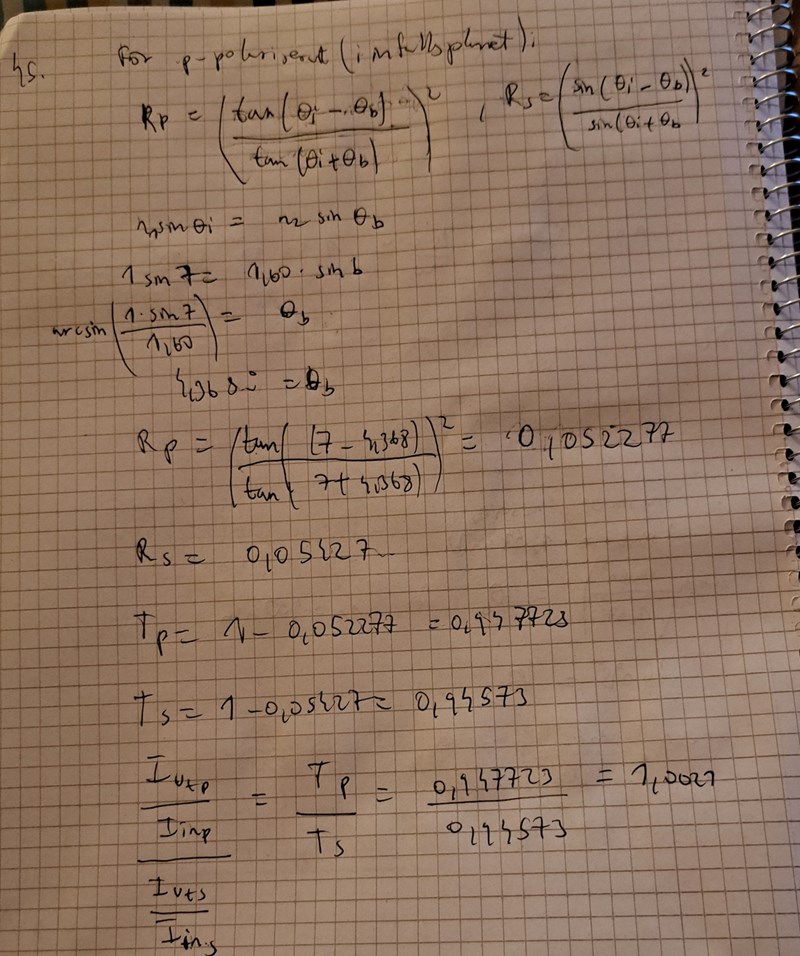 45. For p-polariserat (infallsplanet):
Rp = (tan(θi - θb) / tan(θi+θb))² , Rs = (sin(θi - θb) / sin(θi+θb)²
n₁ sin θi = n₂ sin θb
1 sin 7 = 1,60 · sin b
arcsin(1·sin 7 / 1,60) = θb
4,368.. = θb
Rp = (tan( (7 - 4,368) / tan( 7 + 4,368))² = 0,052277
Rs = 0,05427..
Tp = 1 - 0,052277 = 0,947723
Ts = 1 - 0,05427 = 0,94573
Iutp / Iinp / Iuts / Iins = Tp / Ts = 0,947723 / 0,94573 = 1,0021